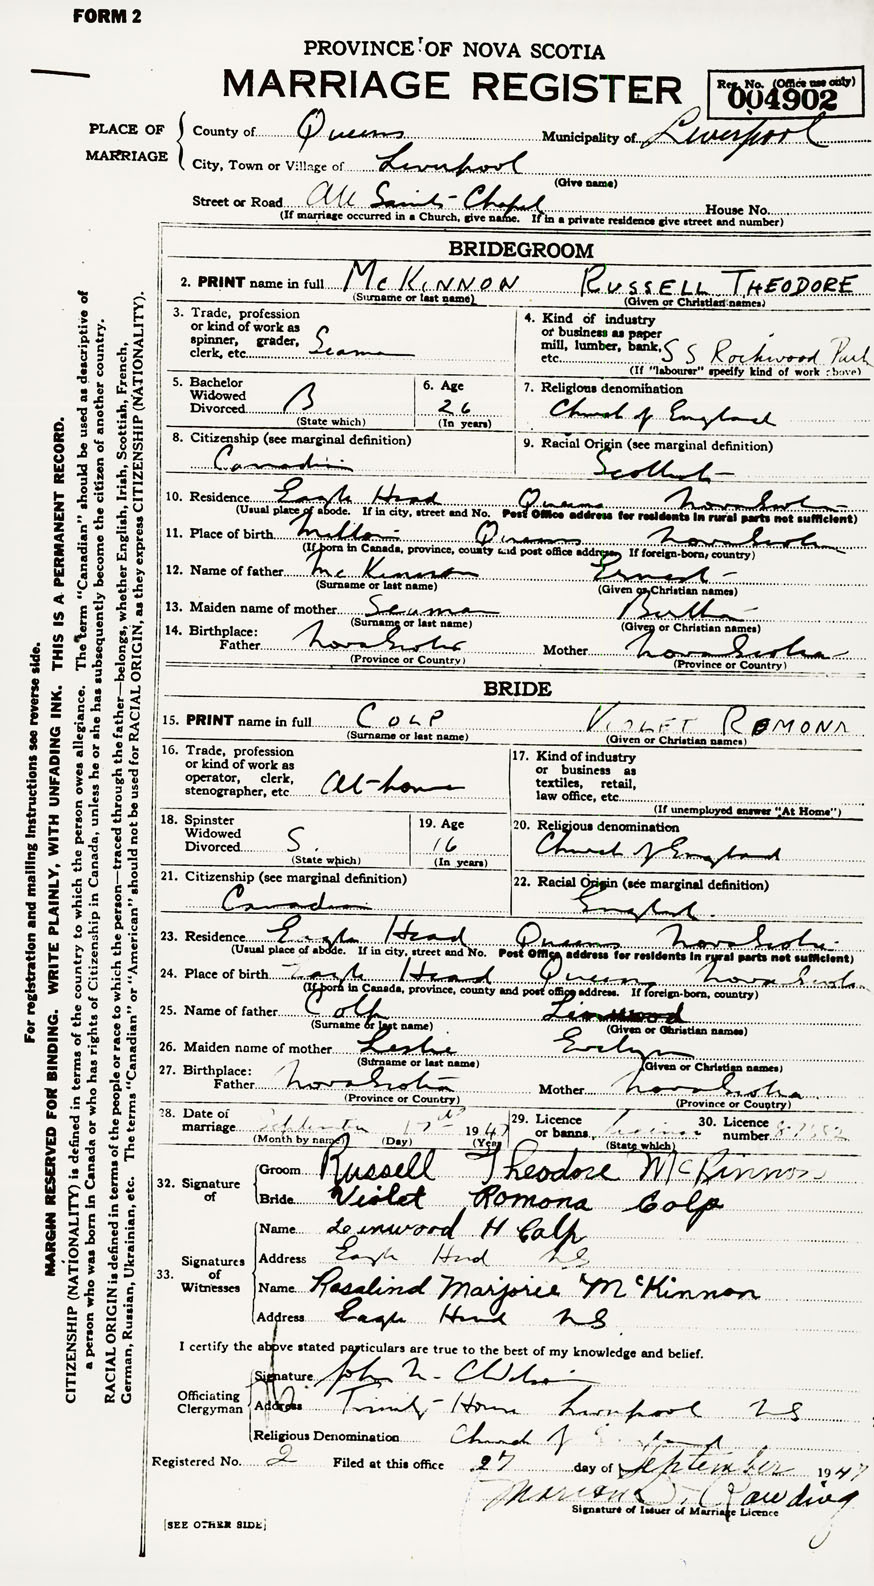 FORM 2
PROVINCE OF NOVA SCOTIA
MARRIAGE REGISTER
Reg. No. (Office use only)
004902
PLACE OF MARRIAGE
County of Queens Municipality of Liverpool
City, Town or Village of Liverpool
(Give name)
Street or Road All Saints - Chapel House No.
(If marriage occurred in a Church, give name. If in a private residence give street and number)
BRIDEGROOM
2. PRINT name in full McKINNON RUSSELL THEODORE
(Surname or last name) (Given or Christian names)
3. Trade, profession or kind of work as spinner, grader, clerk, etc. Seaman
4. Kind of industry or business as paper mill, lumber, bank, etc. S S Rockwood Park
(If "labourer" specify kind of work above)
5. Bachelor Widowed Divorced B
(State which)
6. Age 26
(In years)
7. Religious denomination Church of England
8. Citizenship (see marginal definition) Canadian
9. Racial Origin (see marginal definition) Scottish
10. Residence Eagle Head Queens Nova Scotia
(Usual place of abode. If in city, street and No. Post Office address for residents in rural parts not sufficient)
11. Place of birth Milton Queens Nova Scotia
(If born in Canada, province, county and post office address. If foreign-born, country)
12. Name of father McKinnon Ernest
(Surname or last name) (Given or Christian names)
13. Maiden name of mother Seaman Bertha
(Surname or last name) (Given or Christian names)
14. Birthplace: Father Nova Scotia Mother Nova Scotia
(Province or Country) (Province or Country)
BRIDE
15. PRINT name in full COLP VIOLET ROMONA
(Surname or last name) (Given or Christian names)
16. Trade, profession or kind of work as operator, clerk, stenographer, etc. At-home
17. Kind of industry or business as textiles, retail, law office, etc.
(If unemployed answer "At Home")
18. Spinster Widowed Divorced S.
(State which)
19. Age 16
(In years)
20. Religious denomination Church of England
21. Citizenship (see marginal definition) Canadian
22. Racial Origin (see marginal definition) English
23. Residence Eagle Head Queens Nova Scotia
(Usual place of abode. If in city, street and No. Post Office address for residents in rural parts not sufficient)
24. Place of birth Eagle Head Queens Nova Scotia
(If born in Canada, province, county and post office address. If foreign-born, country)
25. Name of father Colp Linwood
(Surname or last name) (Given or Christian names)
26. Maiden name of mother Leslie Evelyn
(Surname or last name) (Given or Christian names)
27. Birthplace: Father Nova Scotia Mother Nova Scotia
(Province or Country) (Province or Country)
28. Date of marriage September 17th 1947
(Month by name) (Day) (Year)
29. Licence or banns License
(State which)
30. Licence number
32. Signature of
Groom Russell Theodore McKinnon
Bride Violet Romona Colp
33. Signatures of Witnesses
Name Leinwood H Colp
Address Eagle Head NS
Name Rosalind Marjorie McKinnon
Address Eagle Head NS
I certify the above stated particulars are true to the best of my knowledge and belief.
Officiating Clergyman
Signature John N.
Address Trinity House Liverpool NS
Religious Denomination Church of England
Registered No. 2 Filed at this office 27 day of September 1947
Marion D. Rawding
Signature of Issuer of Marriage Licence
[SEE OTHER SIDE]
For registration and mailing instructions see reverse side.
MARGIN RESERVED FOR BINDING. WRITE PLAINLY, WITH UNFADING INK. THIS IS A PERMANENT RECORD.
CITIZENSHIP (NATIONALITY) is defined in terms of the country to which the person owes allegiance. The term "Canadian" should be used as descriptive of
a person who was born in Canada or who has rights of Citizenship in Canada, unless he or she has subsequently become the citizen of another country.
RACIAL ORIGIN is defined in terms of the people or race to which the person—traced through the father—belongs, whether English, Irish, Scottish, French,
German, Russian, Ukrainian, etc. The terms "Canadian" or "American" should not be used for RACIAL ORIGIN, as they express CITIZENSHIP (NATIONALITY).